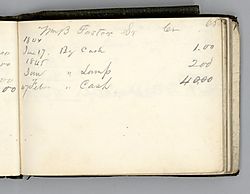 Wm B Foster Sr Cr 65
1844
Jan 17. By Cash 1.00
1845
Jan " Lump 2.00
" Cash 40.00